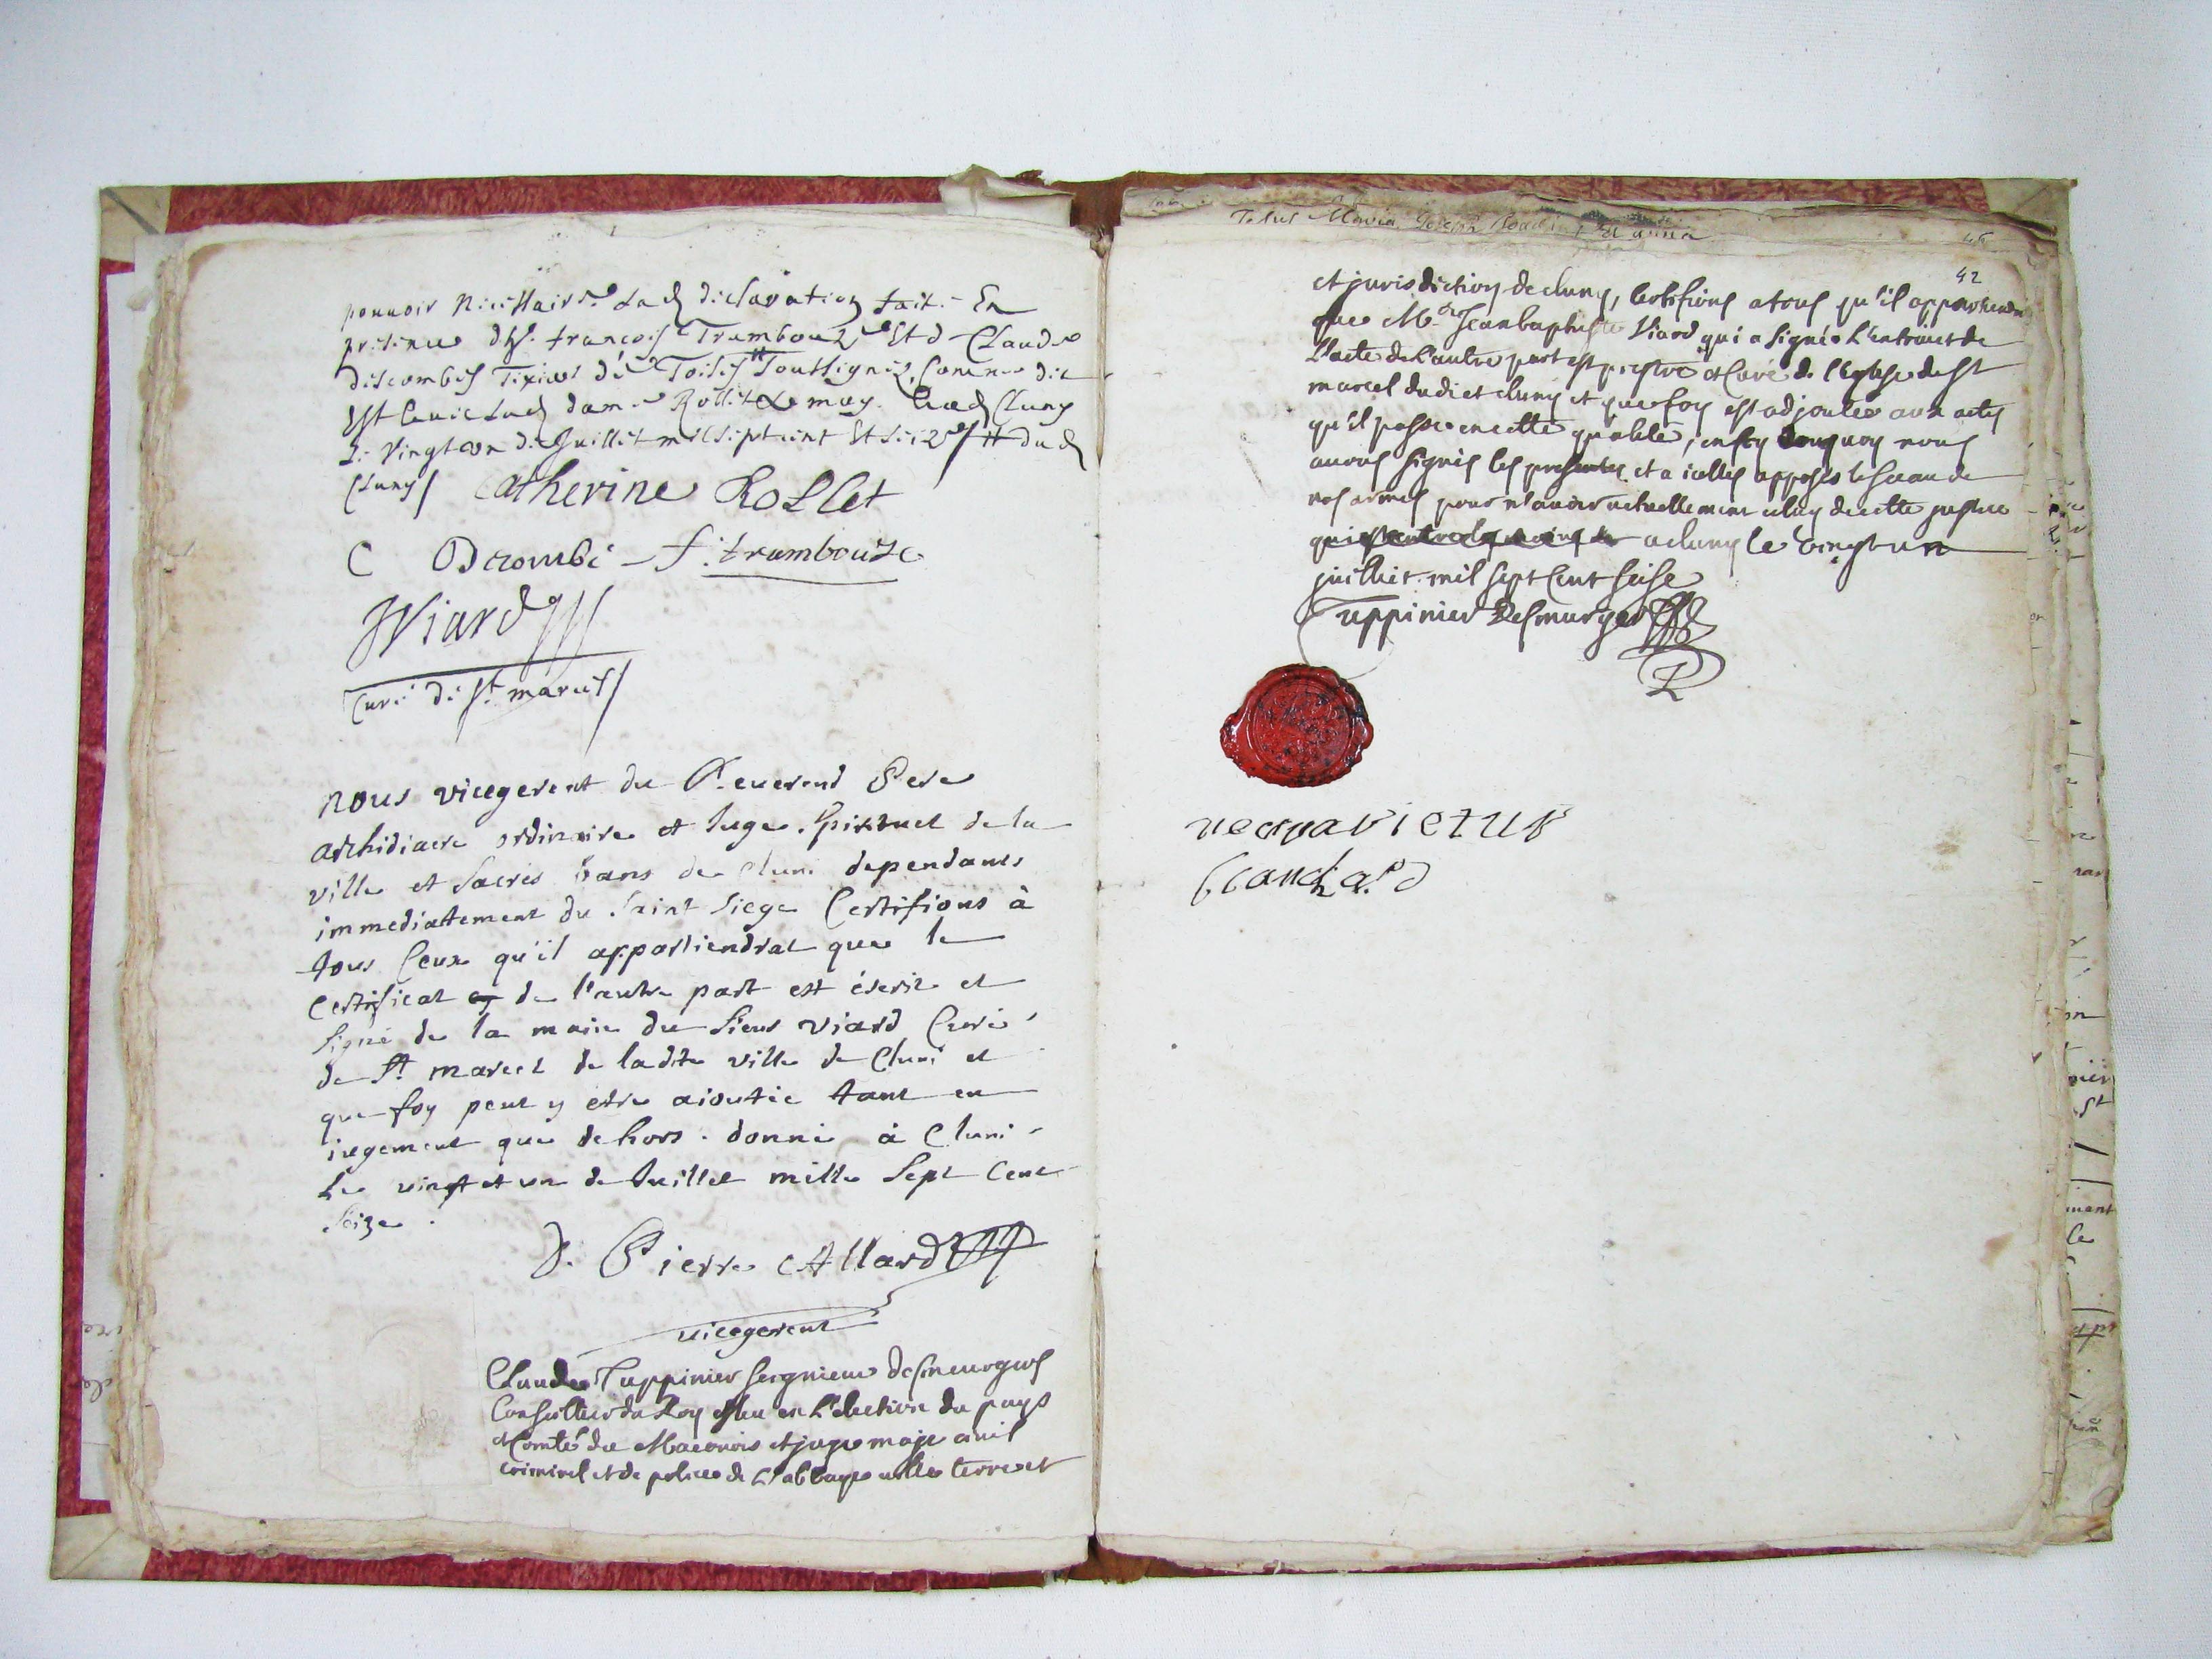 pouuoir necessaire. Lad declaration faite En
presence de Sr. francois Trambouze Et de Claude
descombes Tixier de Toiles # Soussignez, Comme dit
Est lauie Lad dame Rollet & moy. aud Cluny
Le Vingt un de Juillet mil sept cent Et seize / # dud
Cluny / Catherine Rollet
C Decombe f. trambouze
JViard
Curé de St. marcel
nous vicegerent du Reuerend Pere
archidiacre ordinaire et Iuge Spirituel de la
ville et Sacrés bans de Cluni dependants
immediattement du Saint Siege Certifions à
tous Ceux qu'il appartiendrat que le
Certificat de l'autre part est écrit et
signé de la main du Sieur Viard Curé
de St. marcel de ladite ville de Cluni et
que foy peut y etre aioutée tant en
iugement que dehors. donné à Cluni
Le vingt et un de Iuillet mille Sept Cent
Seize.
D. Pierre Allard
vicegerent
Claude Tuppinier seigneur desmeurges
Conseiller du Roy esleu en L'election du pays
et Comté du Maconois et juge maje ciuil
criminel et de police de L'abbaye ville terre et
Maria Joseph
46
42
et jurisdiction de cluny, Certifions a tous qu'il appartiendra
que Me. Jean baptiste Viard qui a signé L'extrait de
L'acte de L'autre part est prestre et Curé de l'eglise de St
marcel dudict cluny et que foy est adjoutée aux actes
qu'il passe en cette qualité, en foy dequoy nous
auons signés les presentes et a icelles apposés le sceau de
nos armes pour n'auoir actuellement celuy de cette justice
a cluny le vingt un
juilliet mil sept Cent seise
Tuppinier Desmurger
ne varietur